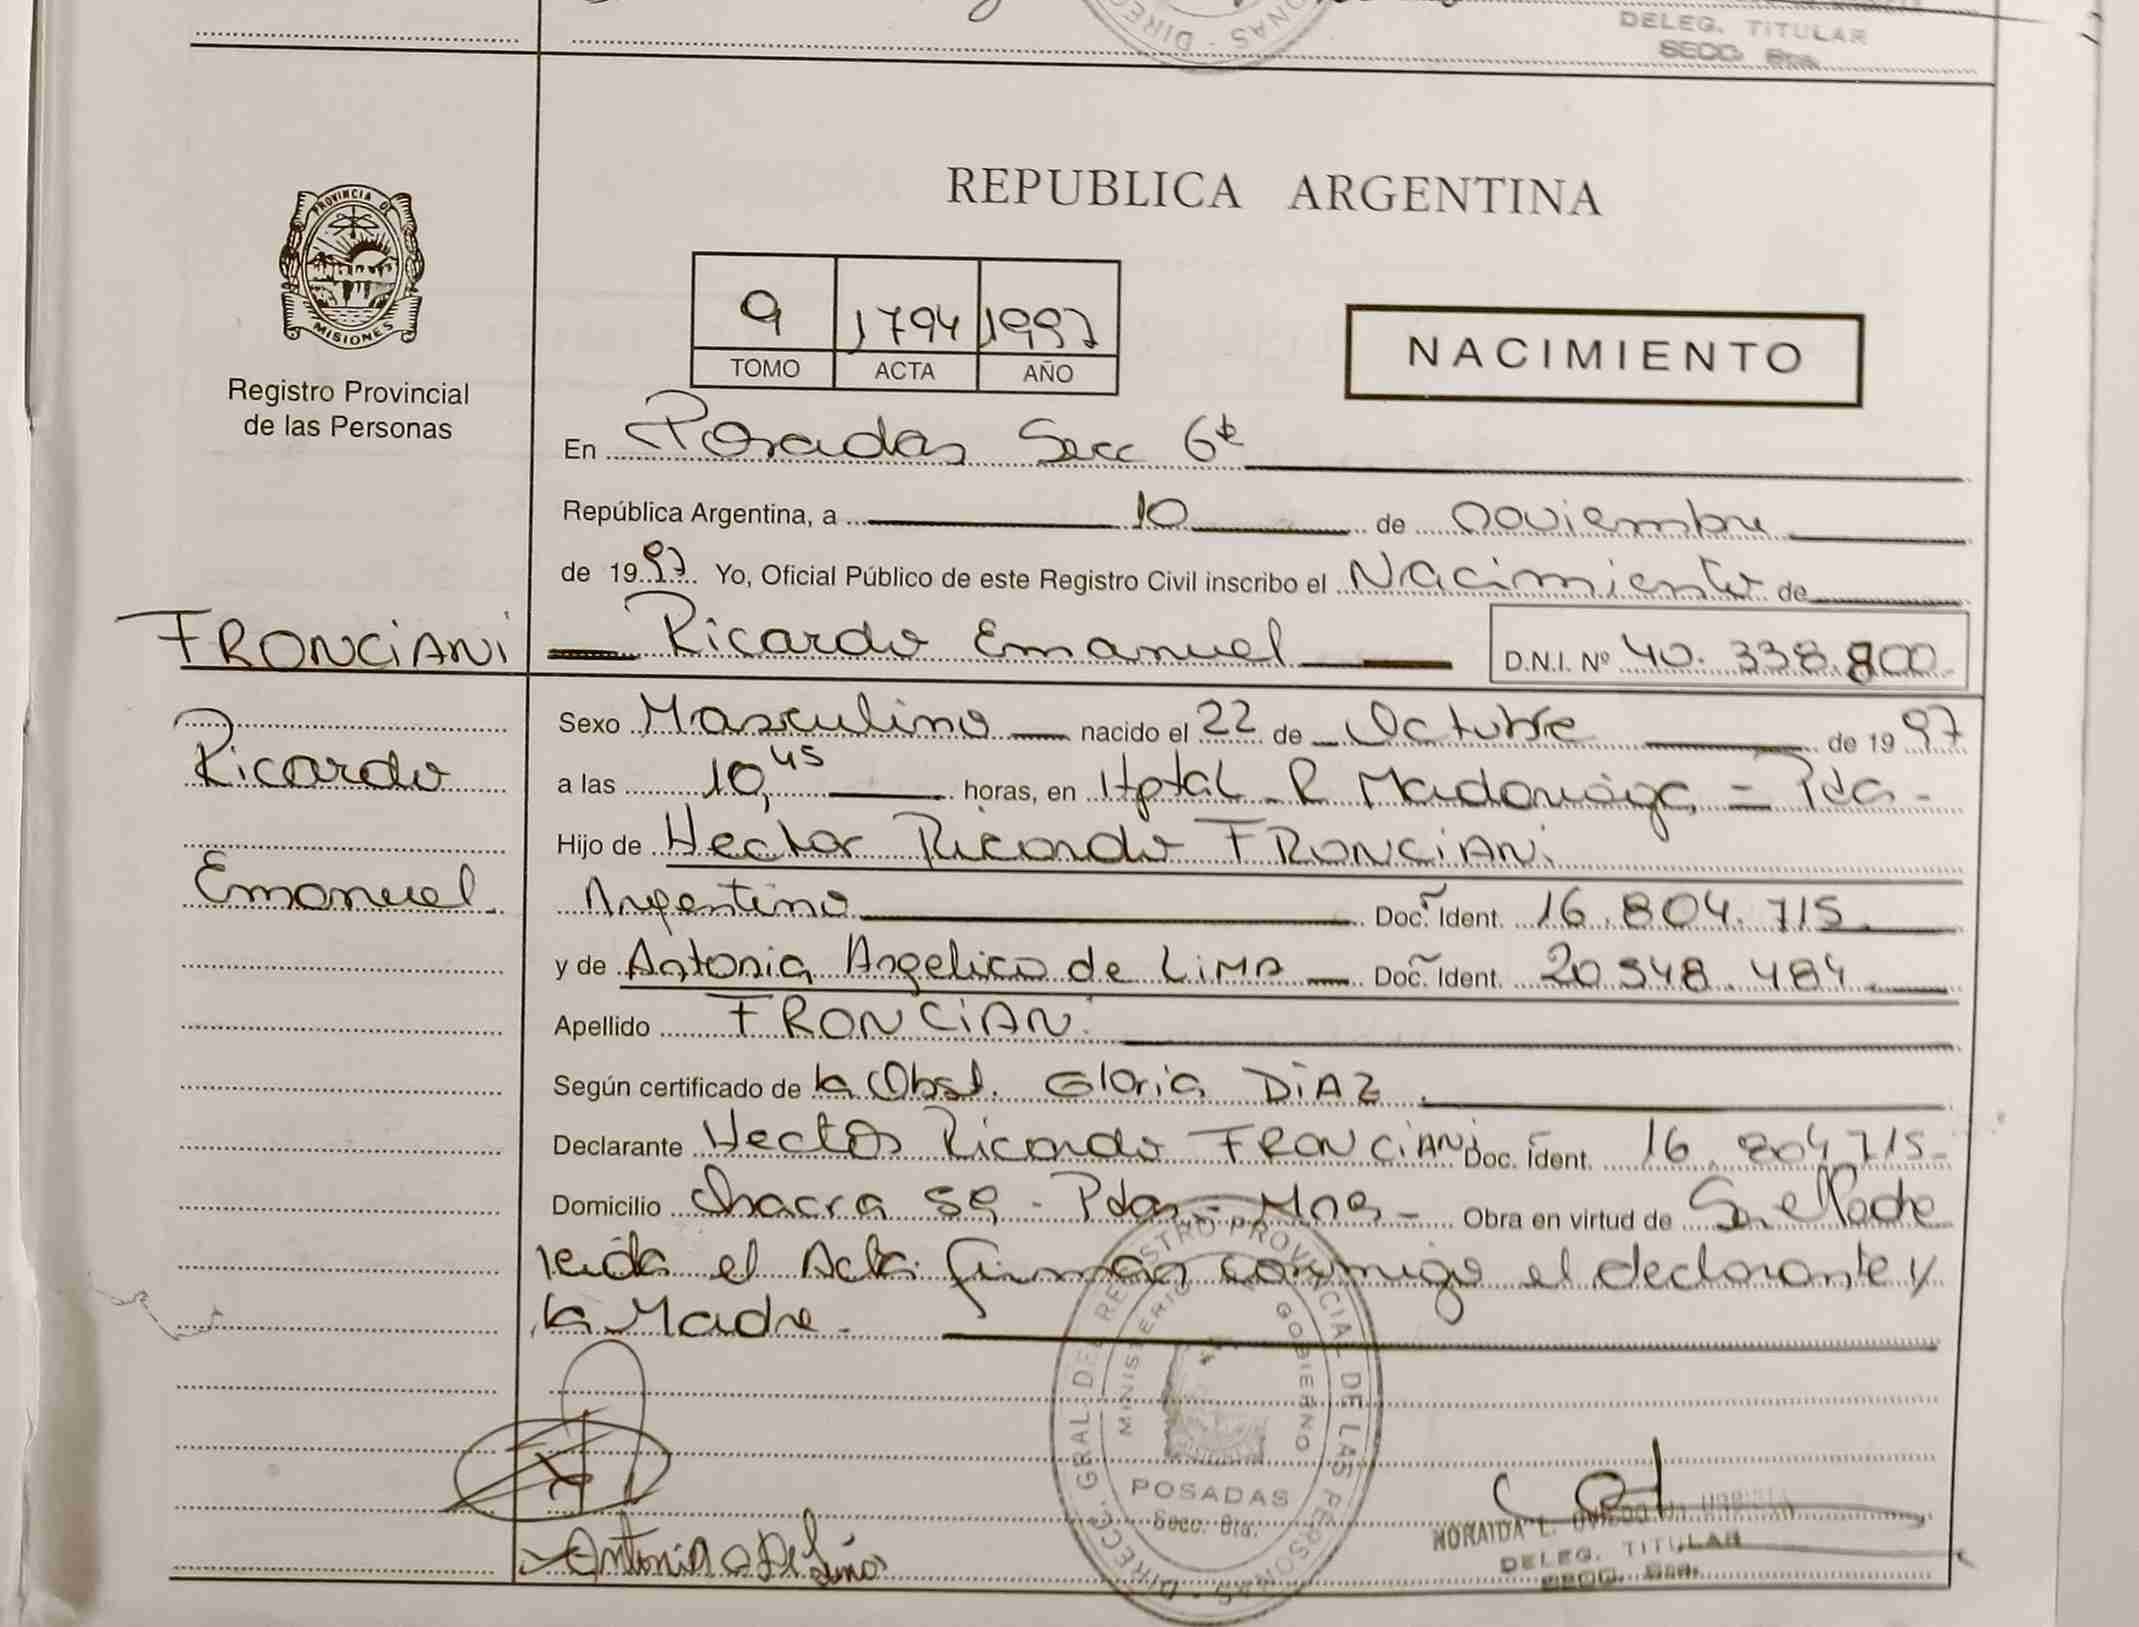 DELEG. TITULAR
SECC. 6ta.
PROVINCIA DE
MISIONES
Registro Provincial
de las Personas
REPUBLICA ARGENTINA
9 1794 1997
TOMO ACTA AÑO
NACIMIENTO
En Posadas Secc 6ta
República Argentina, a 10 de noviembre
de 1997 Yo, Oficial Público de este Registro Civil inscribo el Nacimiento de
FRONCiANi Ricardo Emanuel D.N.I. Nº 40.338.800
Sexo Masculino nacido el 22 de Octubre de 1997
Ricardo
a las 10,45 horas, en Hptal R Madariaga - Pdas -
Hijo de Hector Ricardo FRONCiANi
Emanuel
Argentino Doc. Ident. 16.804.715
y de Antonia Angelica de LiMA Doc. Ident. 20.548.484
Apellido FRONCiANi
Según certificado de la Obst. Gloria DiAZ
Declarante Hector Ricardo FRONCiANi Doc. Ident. 16.804.715
Domicilio Chacra 59 - Pdas - Mnes - Obra en virtud de Ser el Padre
leida el Acta firman conmigo el declarante y
la Madre -
DIRECC. GRAL. DEL REGISTRO PROVINCIAL DE LAS PERSONAS
MINISTERIO GOBIERNO
POSADAS
Secc. 6ta.
Antonia De Lima
DELEG. TITULAR
SECC. 6ta.